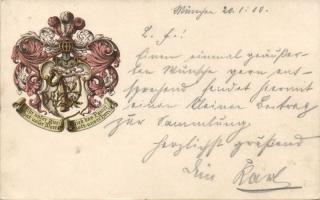 München 20.1.00.
L. F.!
Einen einmal geäußer-
ten Wunsche gern ent-
sprechend sendet hiermit
einen kleinen Beitrag
zur Sammlung
herzlichst grüßend
Dein Karl